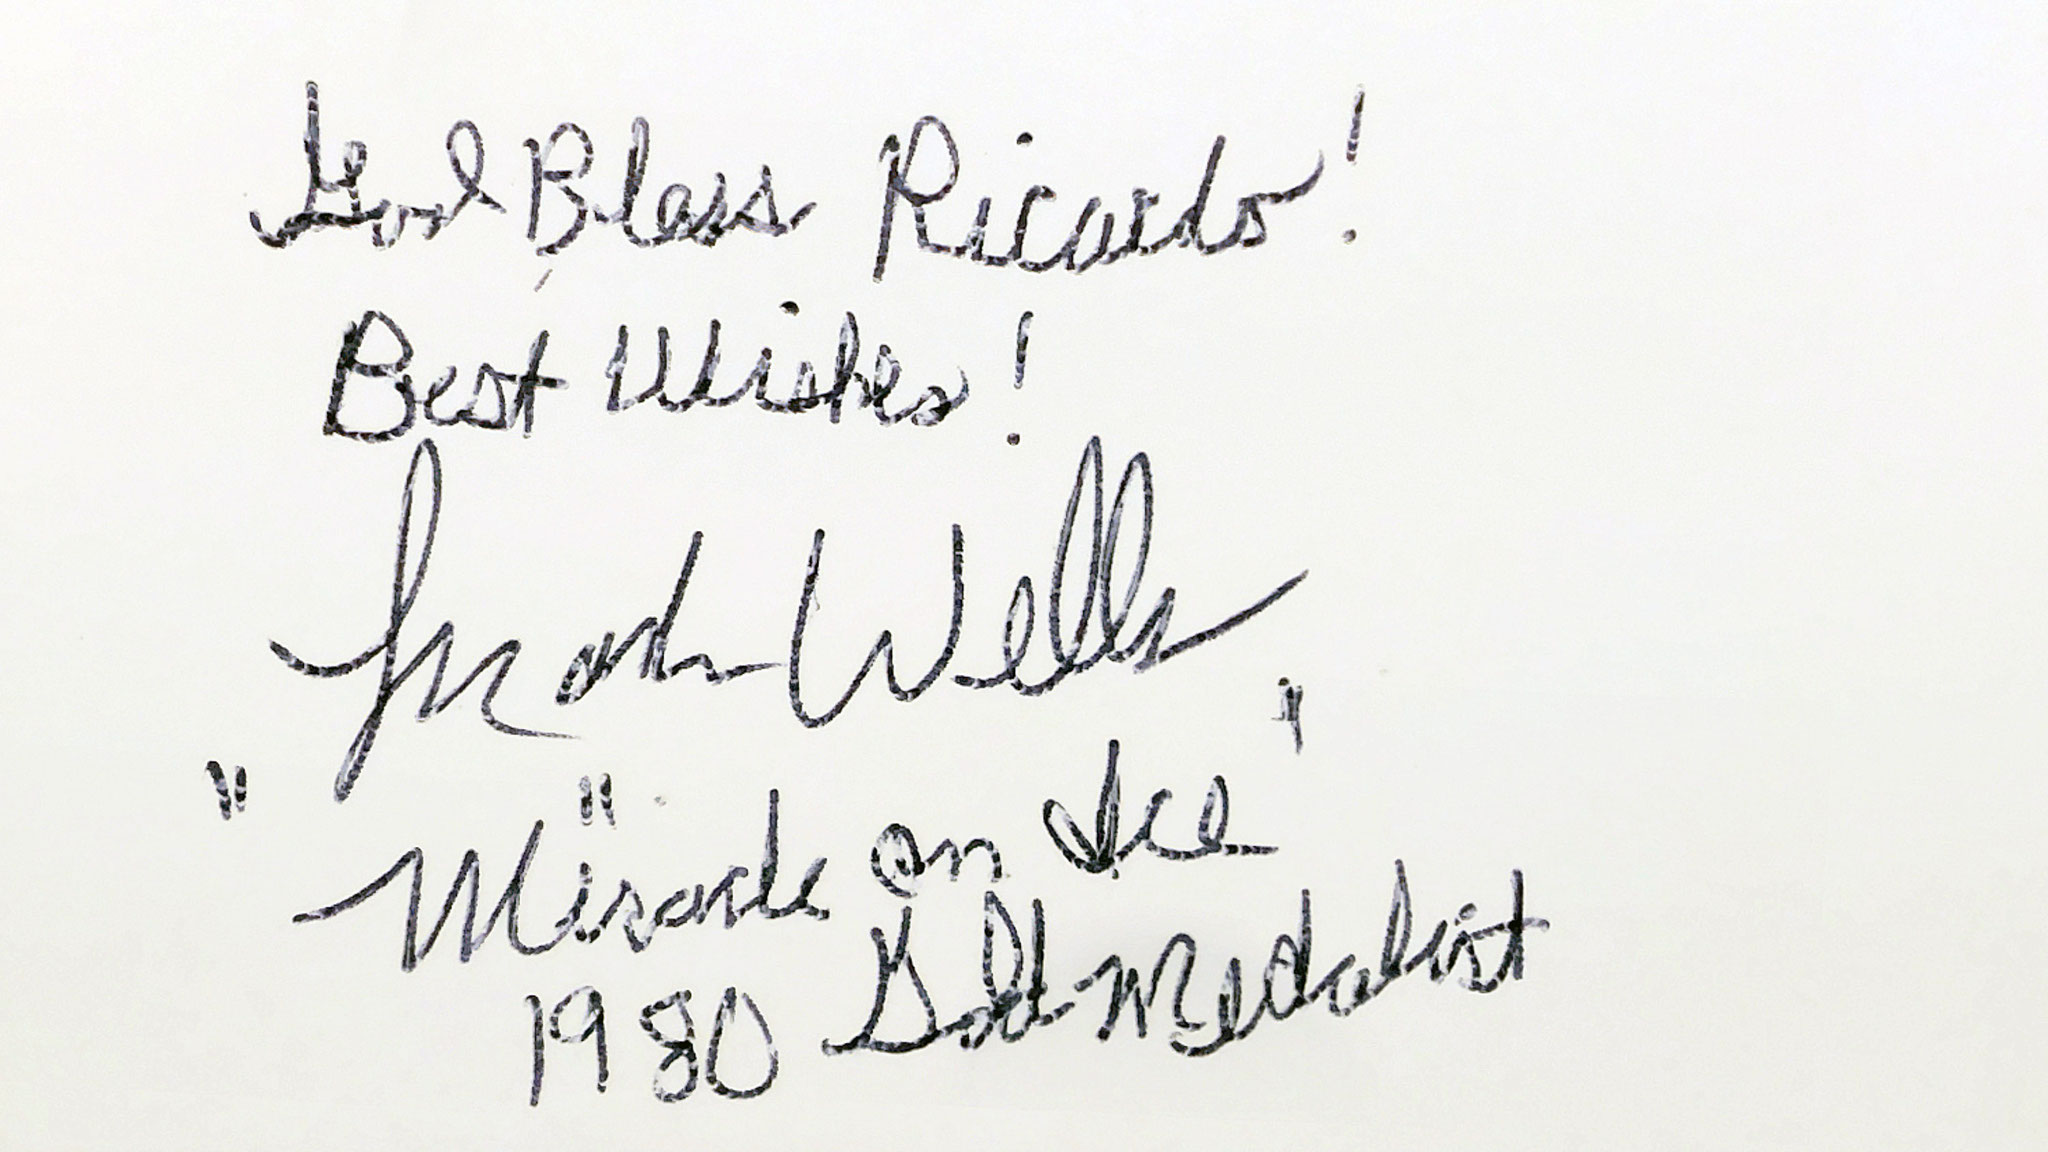 God Bless Ricardo!
Best Wishes!
Mark Wells
"Miracle on Ice"
1980 Gold Medalist